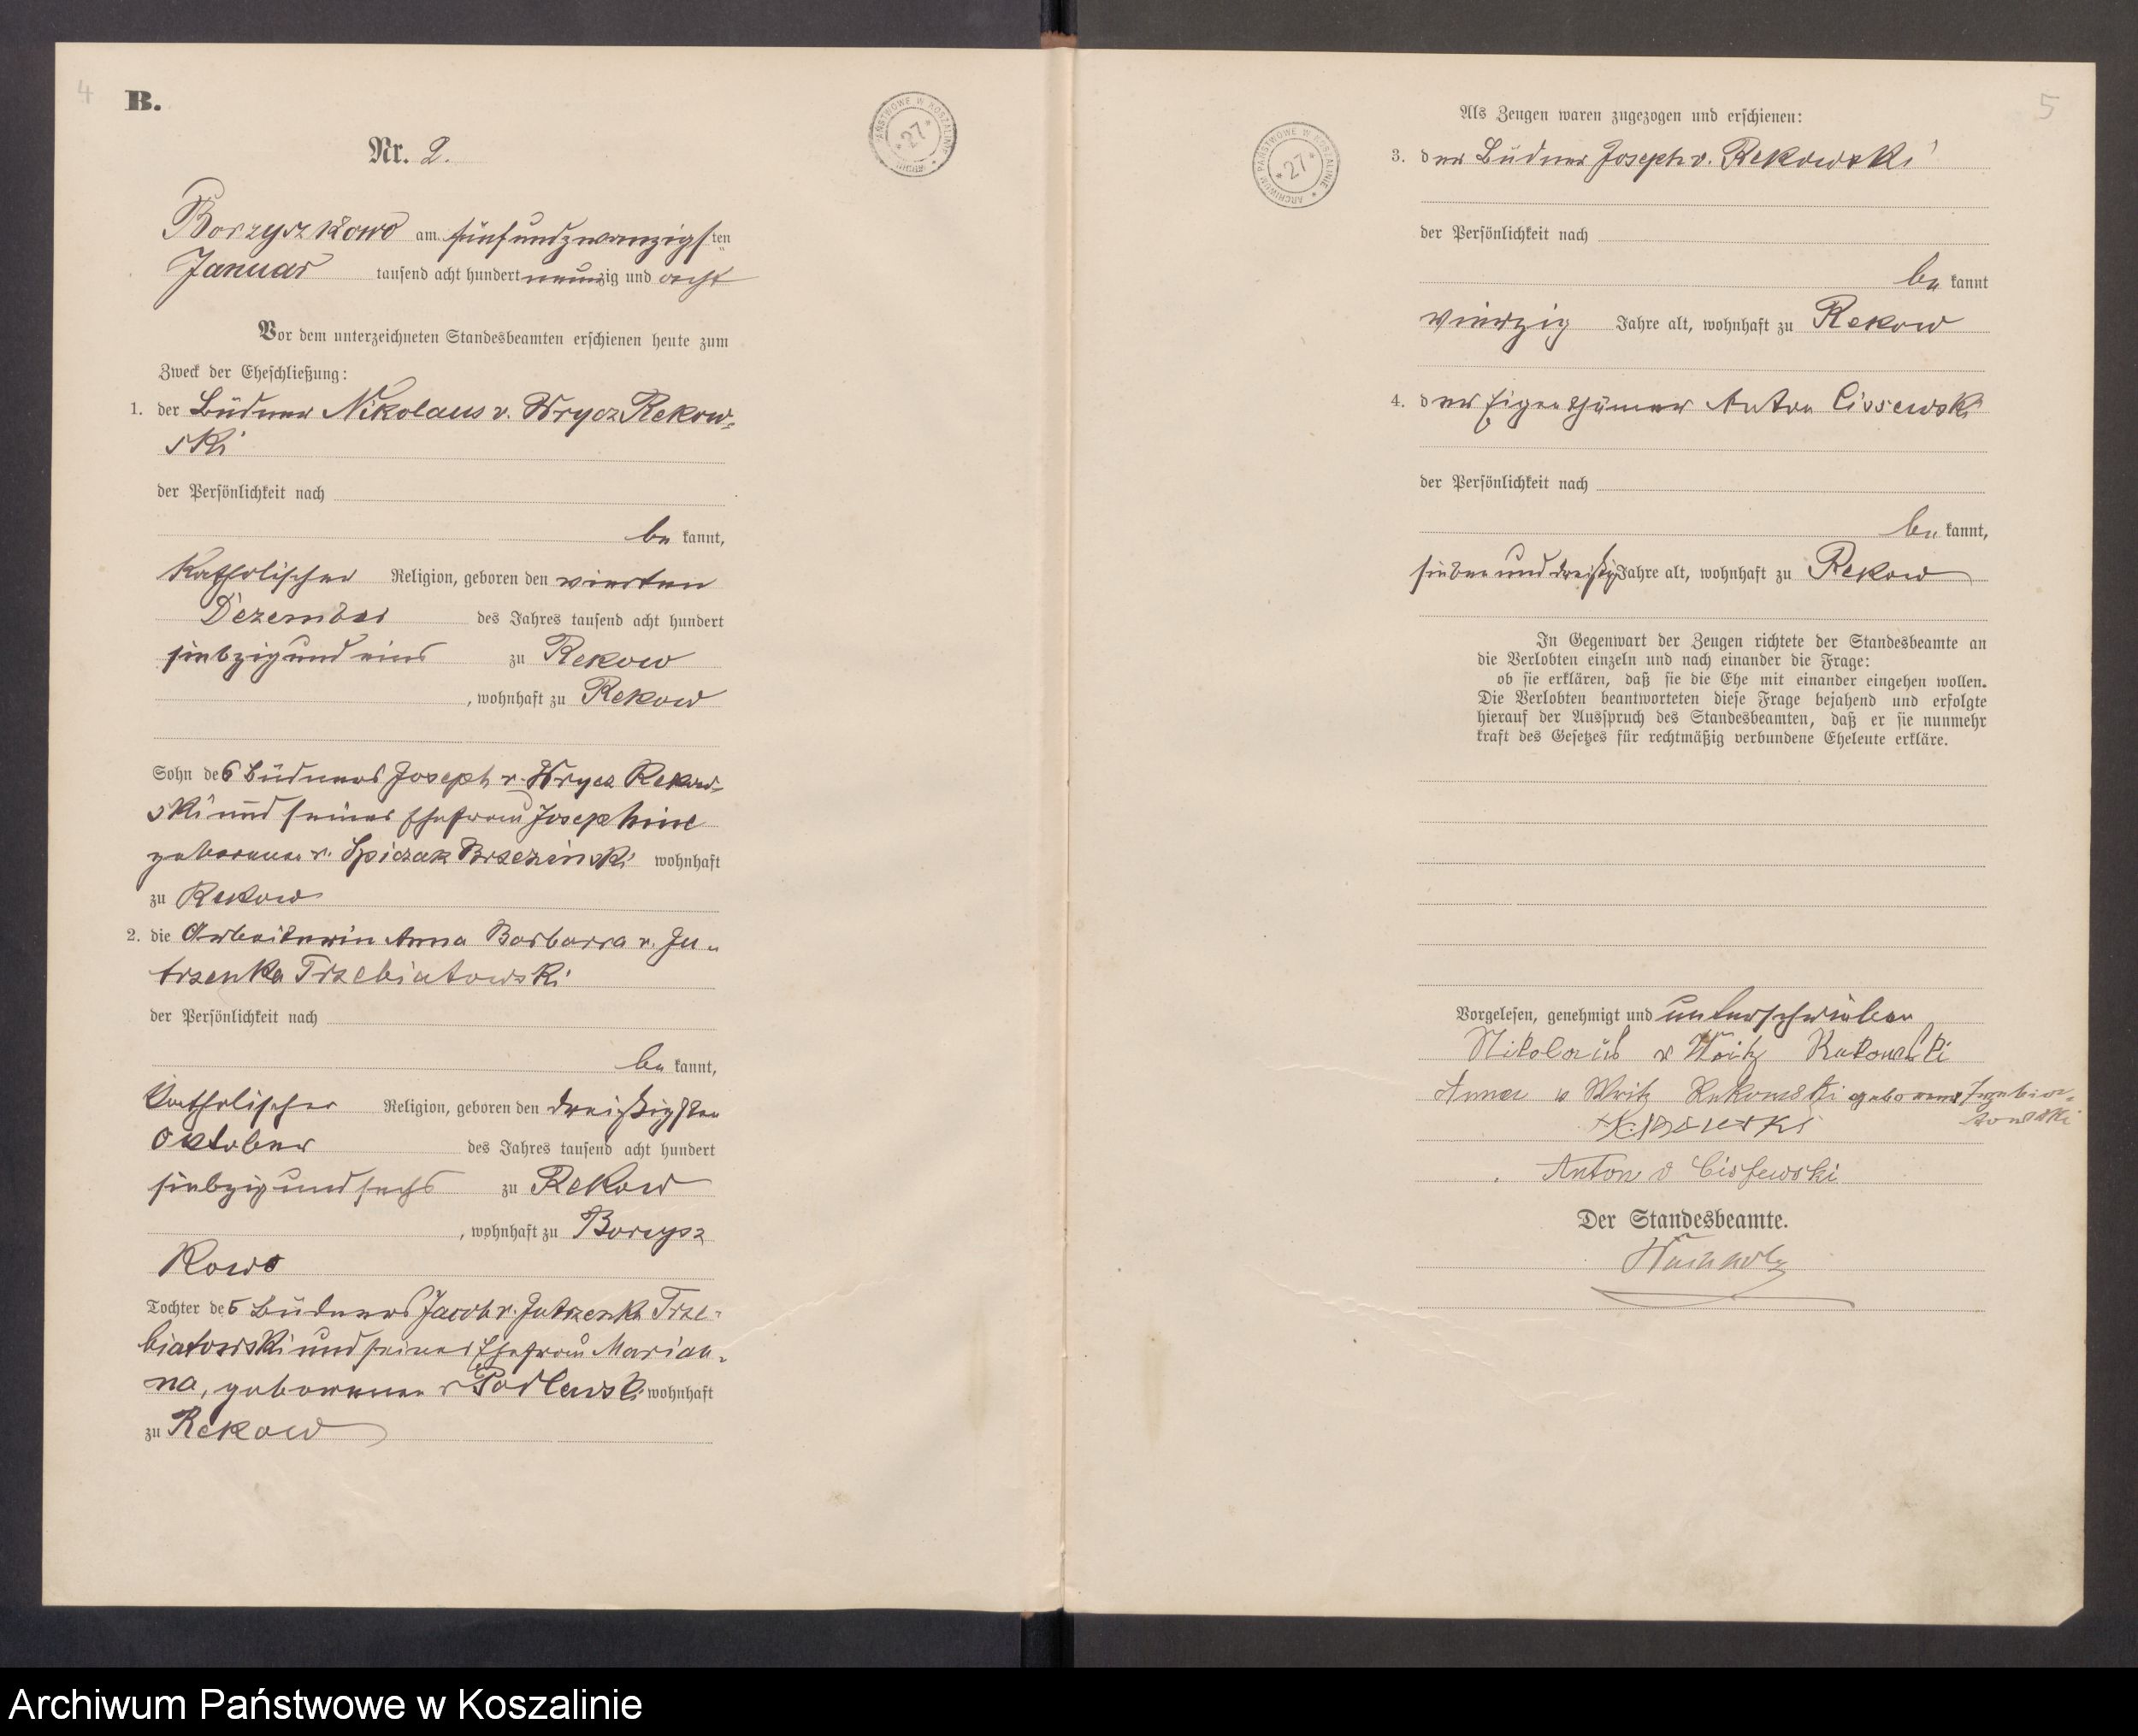 4
B.
Nr. 2.
ARCHIWUM PAŃSTWOWE W KOSZALINIE * 27 *
Borzyszkowo am fünfundzwanzigsten
Januar tausend acht hundert neunzig und acht
Vor dem unterzeichneten Standesbeamten erschienen heute zum
Zweck der Eheschließung:
1. der Büdner Nikolaus v. Wrycz Rekow-
ski
der Persönlichkeit nach
be kannt,
Katholischer Religion, geboren den vierten
Dezember des Jahres tausend acht hundert
siebzig und eins zu Rekow
, wohnhaft zu Rekow
Sohn des Büdners Joseph v. Wrycz Rekow-
ski und seiner Ehefrau Josephine
geborenen v. Spiczak Brzezinski wohnhaft
zu Rekow
2. die Arbeiterin Anna Barbarra v. Ju-
trzenka Trzebiatowski
der Persönlichkeit nach
be kannt,
Katholischer Religion, geboren den dreißigsten
Oktober des Jahres tausend acht hundert
siebzig und sechs zu Rekow
, wohnhaft zu Borzysz
kowo
Tochter des Büdners Jacob v. Jutrzenka Trze-
biatowski und seiner Ehefrau Marian-
na, geborenen v Podlewski wohnhaft
zu Rekow
5
Als Zeugen waren zugezogen und erschienen:
ARCHIWUM PAŃSTWOWE W KOSZALINIE * 27 *
3. der Büdner Joseph v. Rekowski
der Persönlichkeit nach
be kannt
vierzig Jahre alt, wohnhaft zu Rekow
4. der Eigenthümer Anton Cissewski
der Persönlichkeit nach
be kannt,
sieben und dreißig Jahre alt, wohnhaft zu Rekow
In Gegenwart der Zeugen richtete der Standesbeamte an
die Verlobten einzeln und nach einander die Frage:
ob sie erklären, daß sie die Ehe mit einander eingehen wollen.
Die Verlobten beantworteten diese Frage bejahend und erfolgte
hierauf der Ausspruch des Standesbeamten, daß er sie nunmehr
kraft des Gesetzes für rechtmäßig verbundene Eheleute erkläre.
Vorgelesen, genehmigt und unterschrieben
Nikolaus v Writz Rekowski
Anna v Writz Rekowski geborene Trzebia-
towski
Anton v Cissewski
Der Standesbeamte.
Archiwum Państwowe w Koszalinie